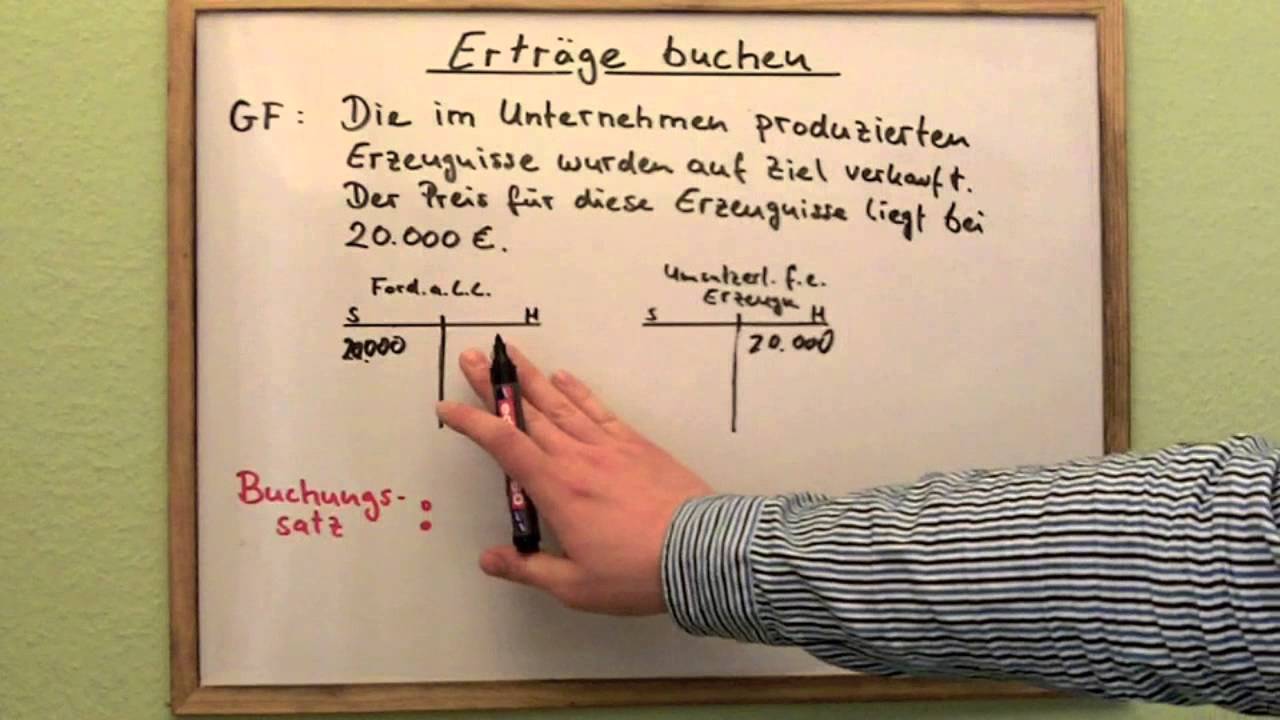 Erträge buchen
GF: Die im Unternehmen produzierten
Erzeugnisse wurden auf Ziel verkauft.
Der Preis für diese Erzeugnisse liegt bei
20.000 €.
Ford.a.L.L.
S H
20.000
Umsatzerl. f.e.
Erzeugn
S H
20.000
Buchungs-
satz :